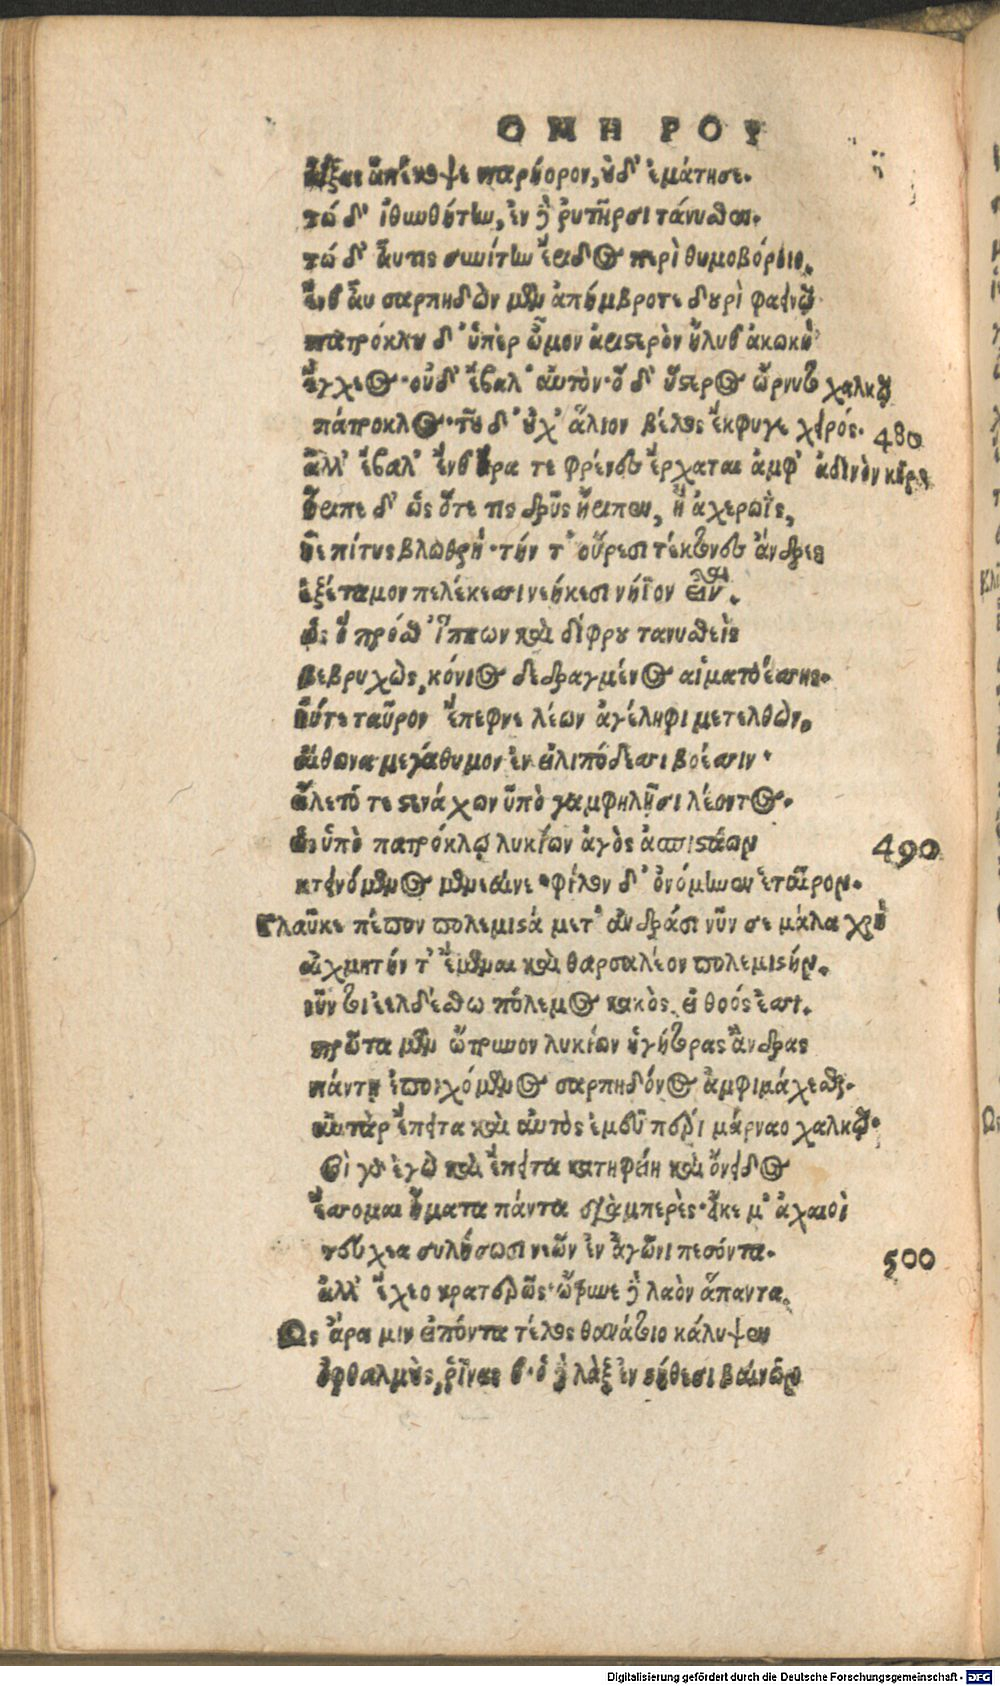 ΟΜΗΡΟΥ
ἀΐξας ἀπέκοψε παρήορον, οὐδ' ἐμάτησε.
τώ δ' ἰθυνθήτην, ἐν δὲ ῥυτῆρσι τάνυσθεν.
τώ δ' αὖτις συνίτην ἔριδος περὶ θυμοβόροιο.
ἔνθ' αὖ σαρπηδὼν μὲν ἀπήμβροτε δουρὶ φαεινῷ
πατρόκλου δ' ὑπὲρ ὦμον ἀριστερὸν ἤλυθ' ἀκωκὴ
ἔγχεος· οὐδ' ἔβαλ' αὐτὸν· ὁ δ' ὕστερος ὤρνυτο χαλκῷ
πάτροκλος· τοῦ δ' οὐχ' ἅλιον βέλος ἔκφυγε χειρός. 480
ἀλλ' ἔβαλ' ἔνθ' ἄρα τε φρένες ἔρχαται ἀμφ' ἁδινὸν κῆρ.
ἤριπε δ' ὡς ὅτε τις δρῦς ἤριπεν, ἢ ἀχερωῒς,
ἠὲ πίτυς βλωθρὴ· τήν τ' οὔρεσι τέκτονες ἄνδρες
ἐξέταμον πελέκεσσι νεήκεσι νήϊον εἶναι.
ὣς ὁ πρόσθ' ἵππων καὶ δίφρου τανυσθεὶς
βεβρυχὼς, κόνιος δεδραγμένος αἱματοέσσης.
ἠύτε ταῦρον ἔπεφνε λέων ἀγέληφι μετελθὼν,
αἴθωνα μεγάθυμον ἐν εἰλιπόδεσσι βόεσσιν·
ὤλετό τε στενάχων ὑπὸ γαμφηλῇσι λέοντος.
ὣς ὑπὸ πατρόκλῳ λυκίων ἀγὸς ἀσπιστάων 490
κτεινόμενος μενέαινε· φίλον δ' ὀνόμηνεν ἑταῖρον.
Γλαῦκε πέπον πολεμιστά μετ' ἀνδράσι νῦν σε μάλα χρὴ
αἰχμητήν τ' ἔμεναι καὶ θαρσαλέον πολεμιστήν.
νῦν τοι ἐελδέσθω πόλεμος κακὸς, εἰ θοός ἐσσι.
πρῶτα μὲν ὤτρυνον λυκίων ἡγήτορας ἄνδρας
πάντῃ ἐποιχόμενος σαρπηδόνος ἀμφιμάχεσθαι.
αὐτὰρ ἔπειτα καὶ αὐτὸς ἐμεῦ περὶ μάρναο χαλκῷ.
Σοὶ γὰρ ἐγὼ καὶ ἔπειτα κατηφείη καὶ ὄνειδος
ἔσσομαι ἤματα πάντα διαμπερὲς· εἴ κε μ' ἀχαιοὶ
τεύχεα συλήσωσι νεῶν ἐν ἀγῶνι πεσόντα. 500
ἀλλ' ἔχεο κρατερῶς· ὤτρυνε δὲ λαὸν ἅπαντα.
Ὣς ἄρα μιν εἰπόντα τέλος θανάτοιο κάλυψεν
ὀφθαλμοὺς, ῥῖνας θ'· ὁ δὲ λὰξ ἐν στήθεσι βαίνων
Digitalisierung gefördert durch die Deutsche Forschungsgemeinschaft - DFG